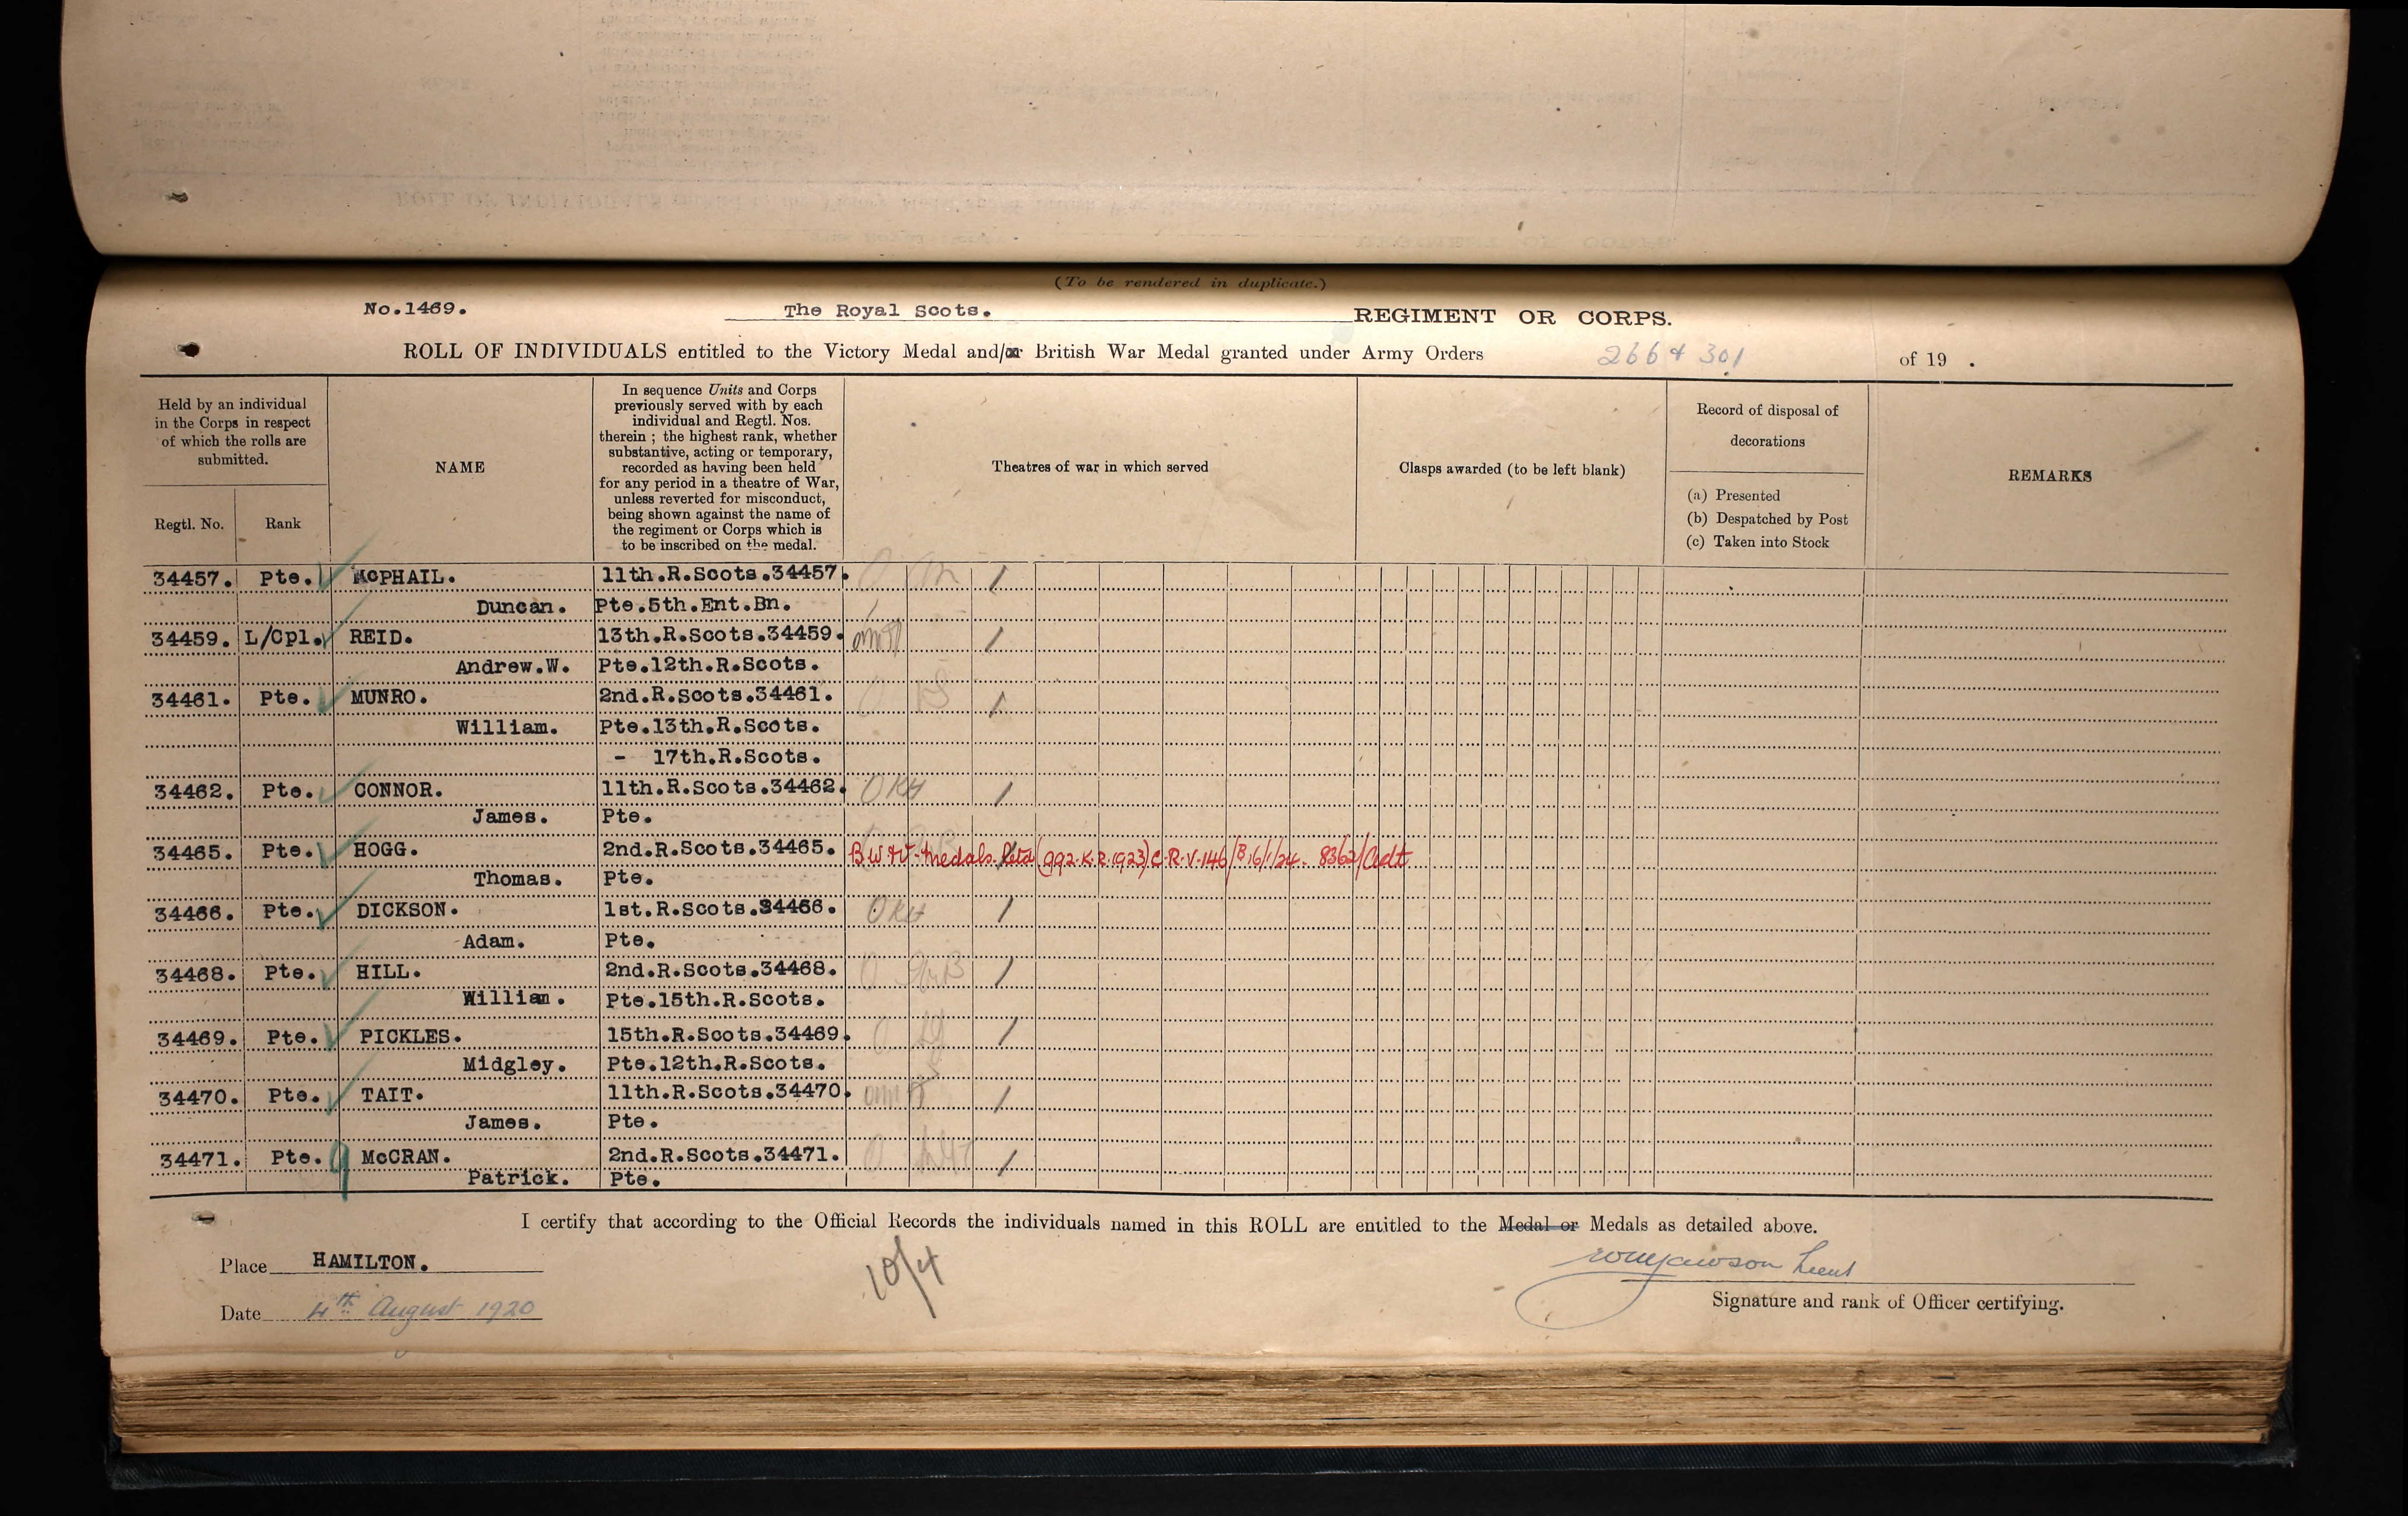 (To be rendered in duplicate.)
No.1469. The Royal Scots. REGIMENT OR CORPS.
ROLL OF INDIVIDUALS entitled to the Victory Medal and/or British War Medal granted under Army Orders 266 & 301 of 19 .
Held by an individual in the Corps in respect of which the rolls are submitted.
Regtl. No. Rank
NAME
In sequence Units and Corps
previously served with by each
individual and Regtl. Nos.
therein ; the highest rank, whether
substantive, acting or temporary,
recorded as having been held
for any period in a theatre of War,
unless reverted for misconduct,
being shown against the name of
the regiment or Corps which is
to be inscribed on the medal.
Theatres of war in which served
Clasps awarded (to be left blank)
Record of disposal of
decorations
(a) Presented
(b) Despatched by Post
(c) Taken into Stock
REMARKS
34457. Pte. McPHAIL. 11th.R.Scots.34457.
Duncan. Pte.5th.Ent.Bn.
34459. L/Cpl. REID. 13th.R.Scots.34459.
Andrew.W. Pte.12th.R.Scots.
34461. Pte. MUNRO. 2nd.R.Scots.34461.
William. Pte.13th.R.Scots.
- 17th.R.Scots.
34462. Pte. CONNOR. 11th.R.Scots.34462.
James. Pte.
34465. Pte. HOGG. 2nd.R.Scots.34465. B W & V Medals Retd (992 K.R. 1923) C.R.V. 146/B, 16/1/24. 8362/Adt
Thomas. Pte.
34466. Pte. DICKSON. 1st.R.Scots.34466.
Adam. Pte.
34468. Pte. HILL. 2nd.R.Scots.34468.
William. Pte.15th.R.Scots.
34469. Pte. PICKLES. 15th.R.Scots.34469.
Midgley. Pte.12th.R.Scots.
34470. Pte. TAIT. 11th.R.Scots.34470.
James. Pte.
34471. Pte. McCRAN. 2nd.R.Scots.34471.
Patrick. Pte.
I certify that according to the Official Records the individuals named in this ROLL are entitled to the Medal or Medals as detailed above.
Place HAMILTON.
10/4
Lieut
Date 4th August 1920
Signature and rank of Officer certifying.